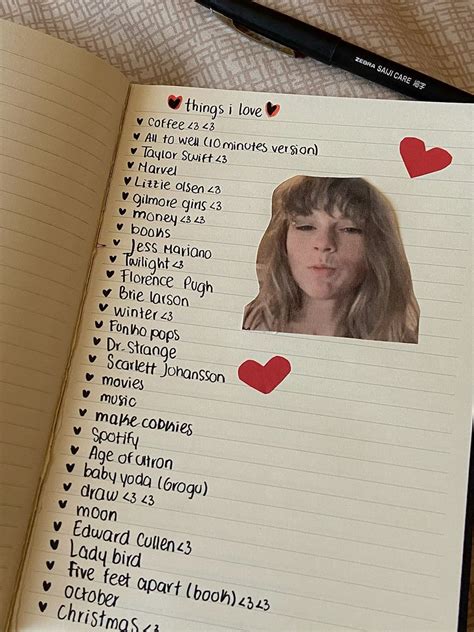 ZEBRA SAIJI CARE 細字
things i love
Coffee <3 <3
All to well (10 minutes version)
Taylor Swift <3
Marvel
Lizzie olsen <3
gilmore girls <3
money <3 <3
books
Jess Mariano
Twilight <3
Florence Pugh
Brie larson
winter <3
Funko pops
Dr. Strange
Scarlett Johansson
movies
music
make cookies
Spotify
Age of utron
baby yoda (Grogu)
draw <3 <3
moon
Edward Cullen <3
Lady bird
Five feet apart (book) <3 <3
october
Christmas <3